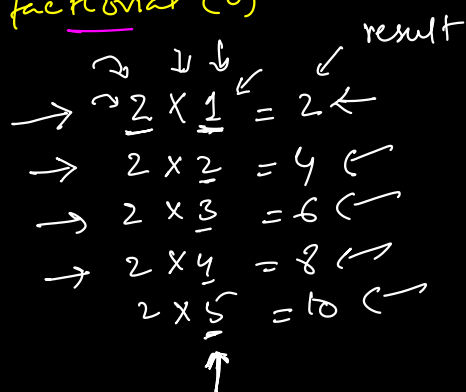 factorial ( )
result
2 × 1 = 2
2 × 2 = 4
2 × 3 = 6
2 × 4 = 8
2 × 5 = 10